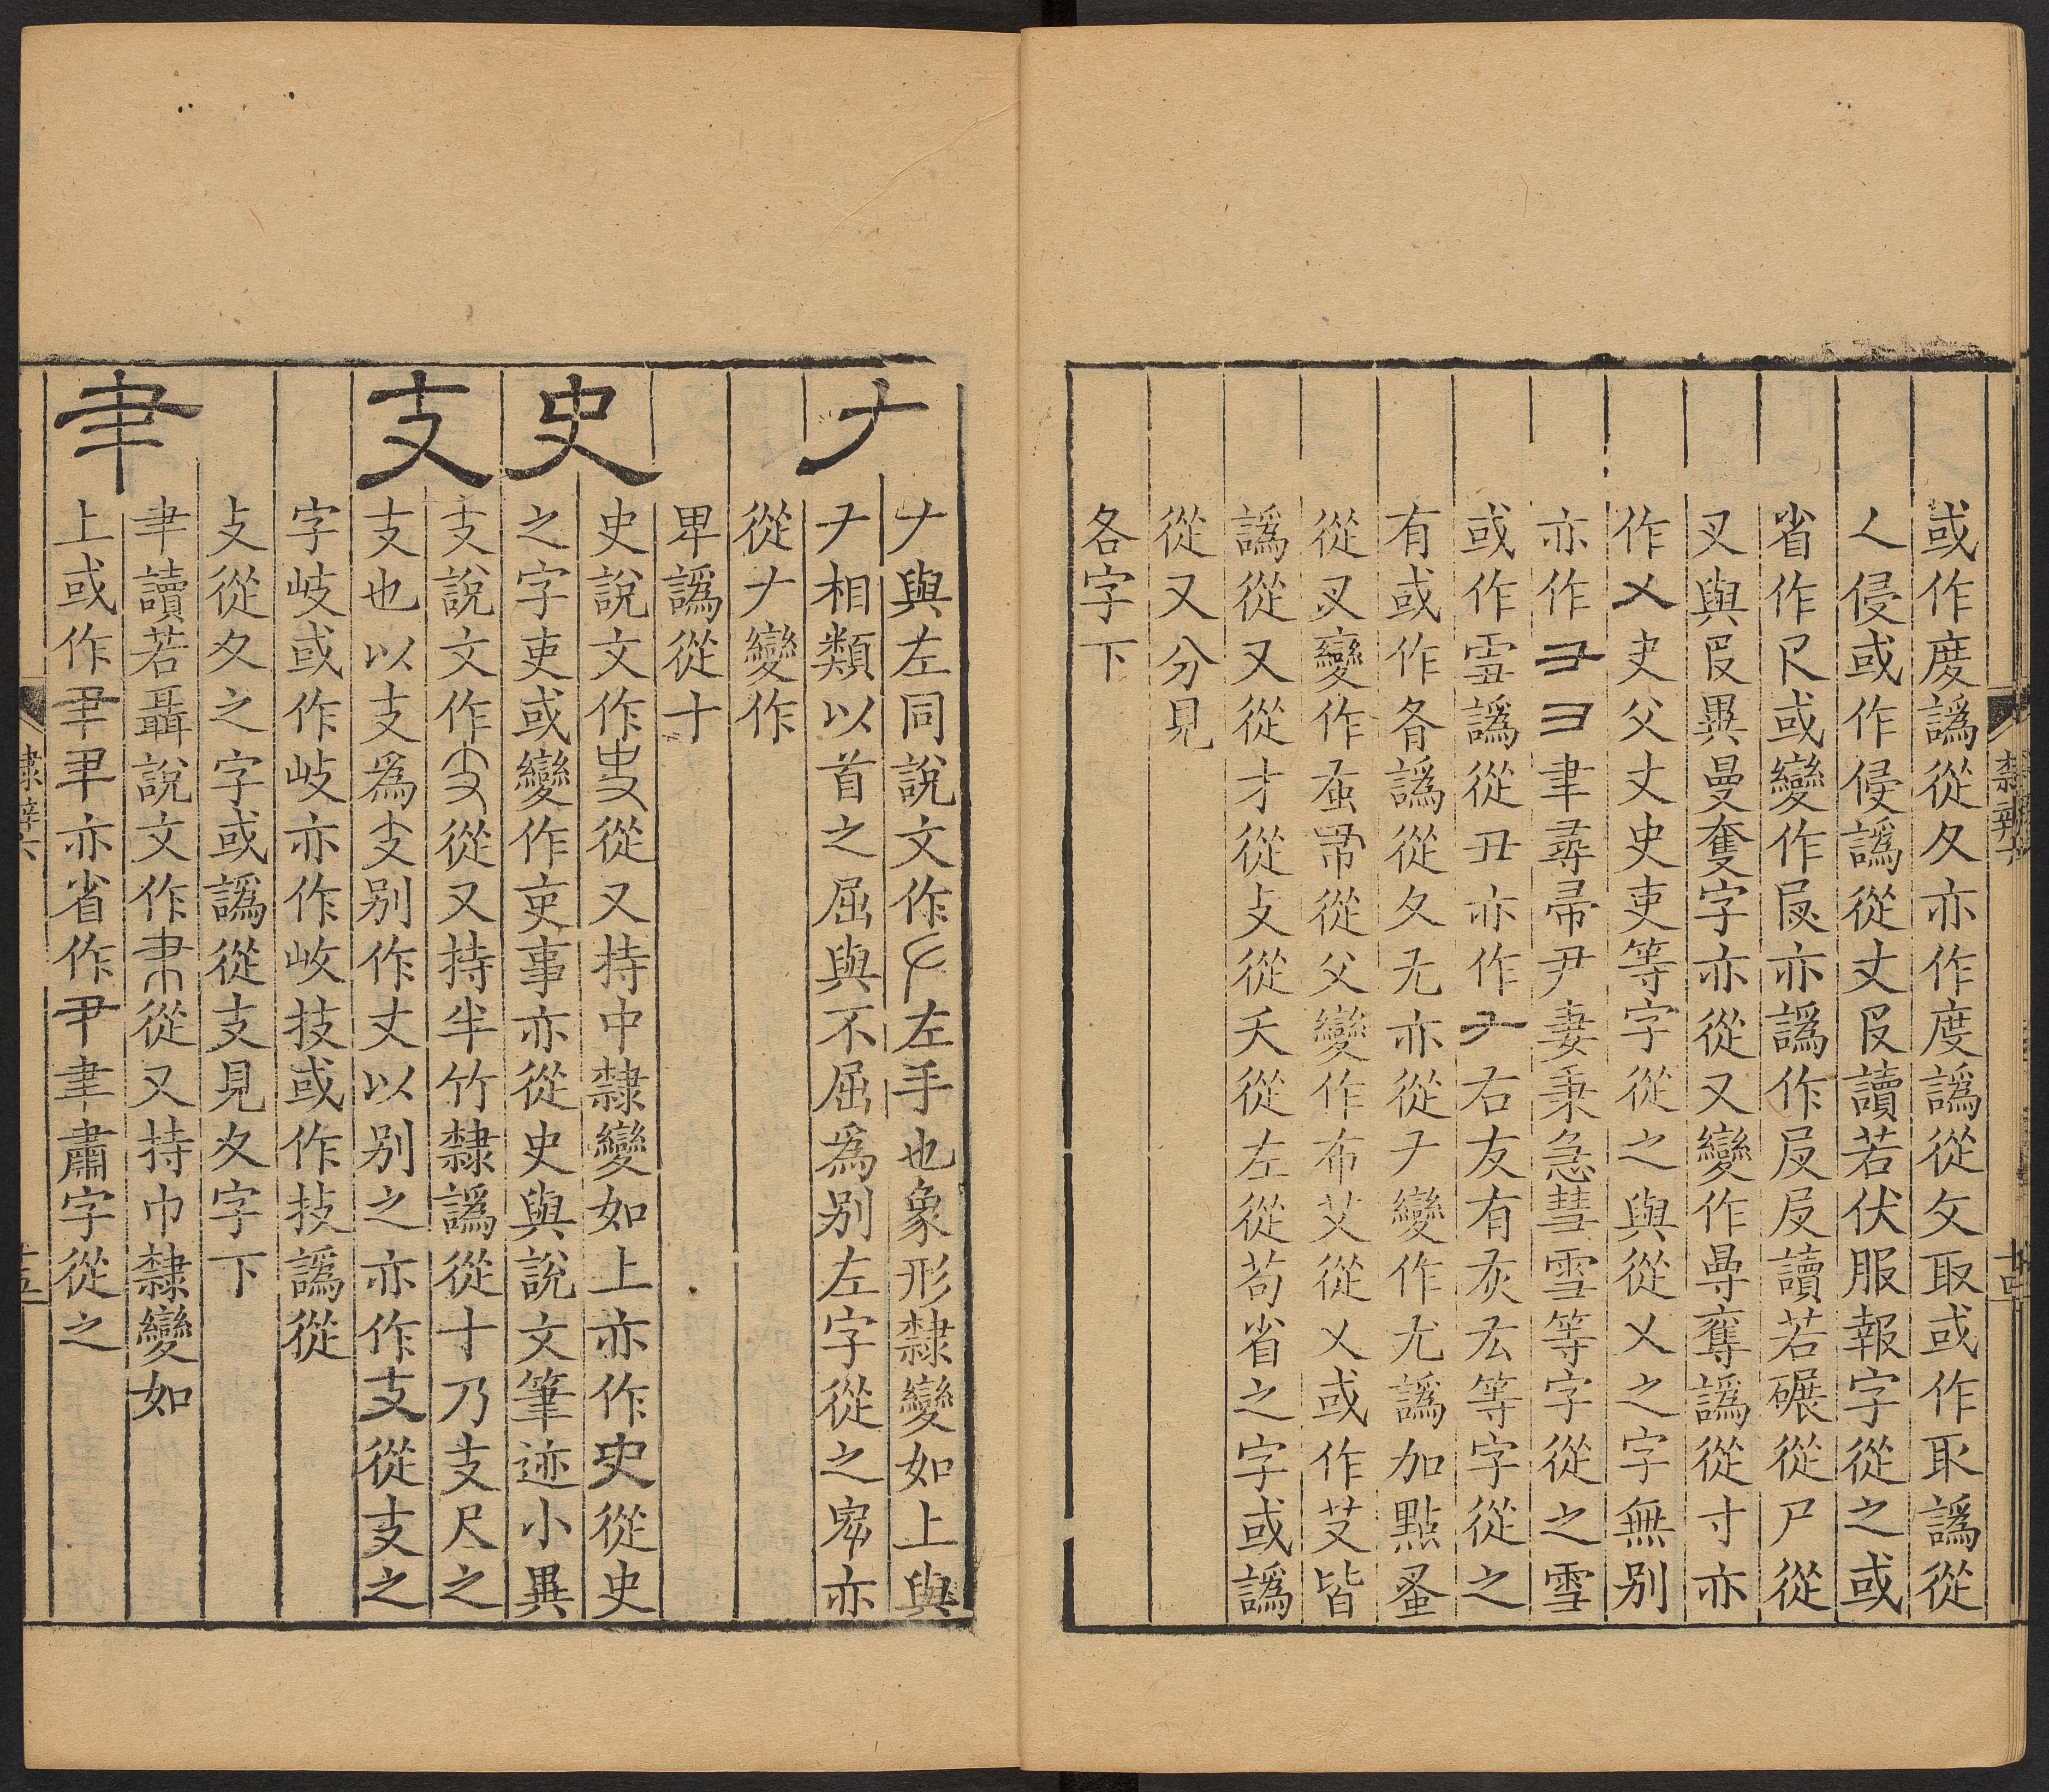 或作度譌從夂亦作度譌從攵取或作取譌從
人侵或作侵譌從丈𠬝讀若伏服報字從之或
省作尺或變作𠬝亦譌作𠬝𠬝讀若碾從尸從
又與𠬝異曼奪字亦從又變作㝵奪譌從寸亦
作㐅吏父丈史吏等字從之與從乂之字無別
亦作⺕彐聿尋帚尹妻秉急彗雪等字從之雪
或作雪譌從丑亦作𠂇右友有灰厷等字從之
有或作㕛譌從夂尢亦從𠂇變作尤譌加點蚤
從叉變作蚤帚從父變作布艾從乂或作芆皆
譌從又從才從攴從夭從左從苟省之字或譌
從又分見
各字下
隸辨六
十四
𠂇
𠂇與左同說文作左手也象形隸變如上與
ナ相類以首之屈與不屈爲别左字從之𠦑亦
從𠂇變作
卑譌從十
史
史說文作𠭁從又持中隸變如上亦作史從史
之字吏或變作吏事亦從史與說文筆迹小異
支
支說文作𠦙從又持半竹隸譌從十乃支尺之
支也以支爲支别作丈以别之亦作支從支之
字岐或作岐亦作㟁技或作技譌從
攴從夂之字或譌從支見夂字下
𦘒
𦘒讀若聶說文作𦘒從又持巾隸變如
上或作𦘔𦘒亦省作𦘒聿肅字從之
隸辨六
十五